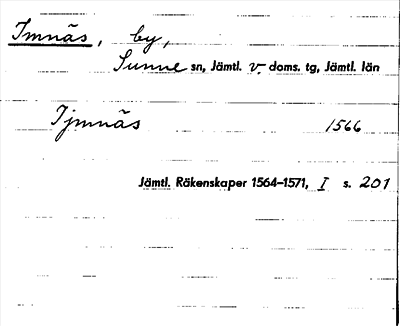 Imnäs, by,
Sunne sn, Jämtl. v. doms. tg, Jämtl. län
Ijmnäs 1566
Jämtl. Räkenskaper 1564–1571, I s. 201